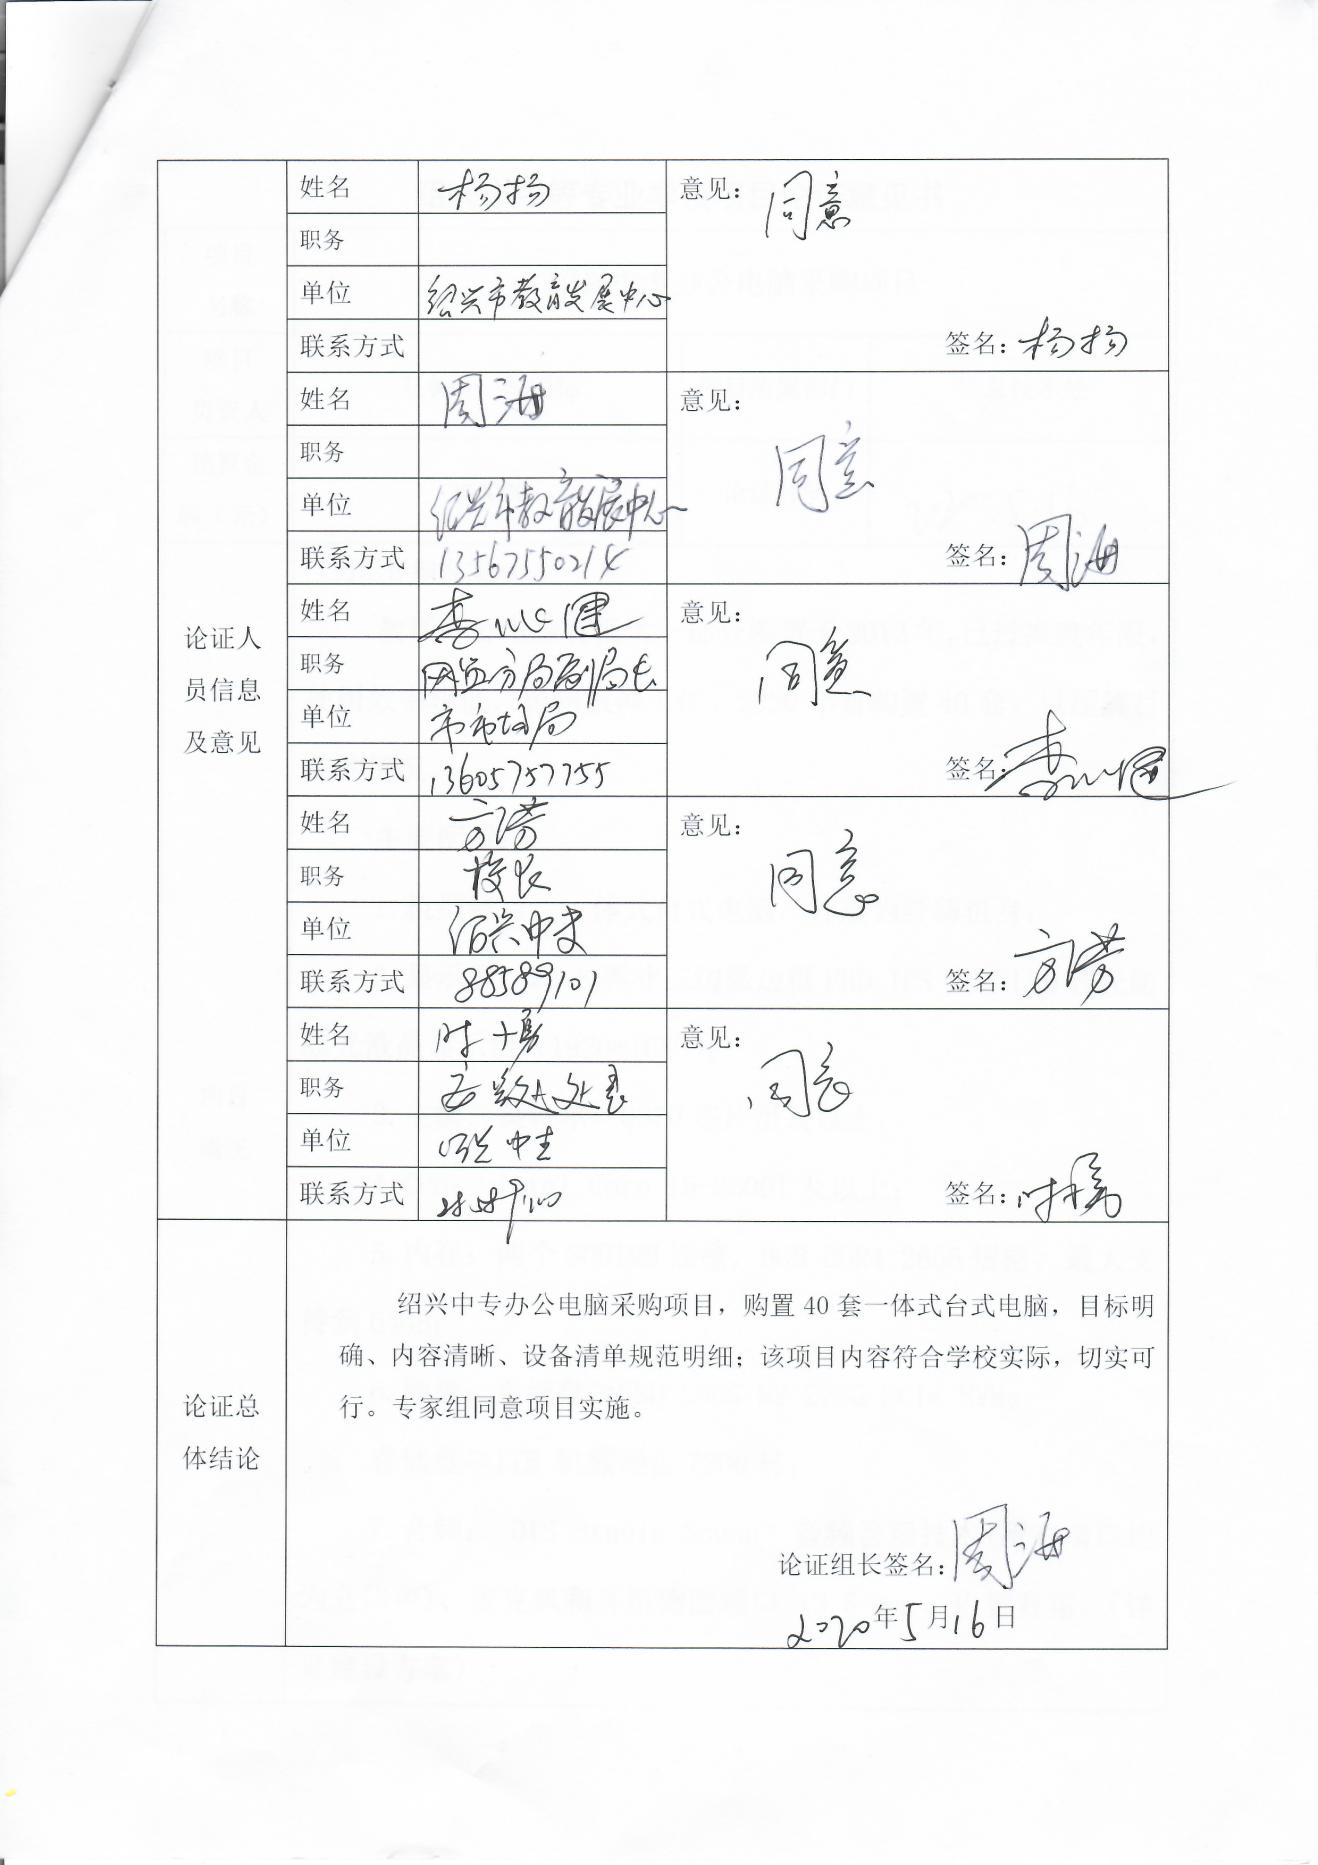 论证人
员信息
及意见
姓名 杨扬
职务
单位 绍兴市教育发展中心
联系方式
意见：同意
签名：杨扬
姓名 周海
职务
单位 绍兴市教育发展中心
联系方式 13567550214
意见：同意
签名：周海
姓名 李
职务 网监分局副局长
单位 市市场局
联系方式 13605757755
意见：同意
签名：李
姓名 方
职务 校长
单位 绍兴中专
联系方式 88589101
意见：同意
签名：方
姓名
职务
单位 绍兴中专
联系方式
意见：同意
签名：
论证总
体结论
绍兴中专办公电脑采购项目，购置 40 套一体式台式电脑，目标明
确、内容清晰、设备清单规范明细；该项目内容符合学校实际，切实可
行。专家组同意项目实施。
论证组长签名：周海
2020年5月16日